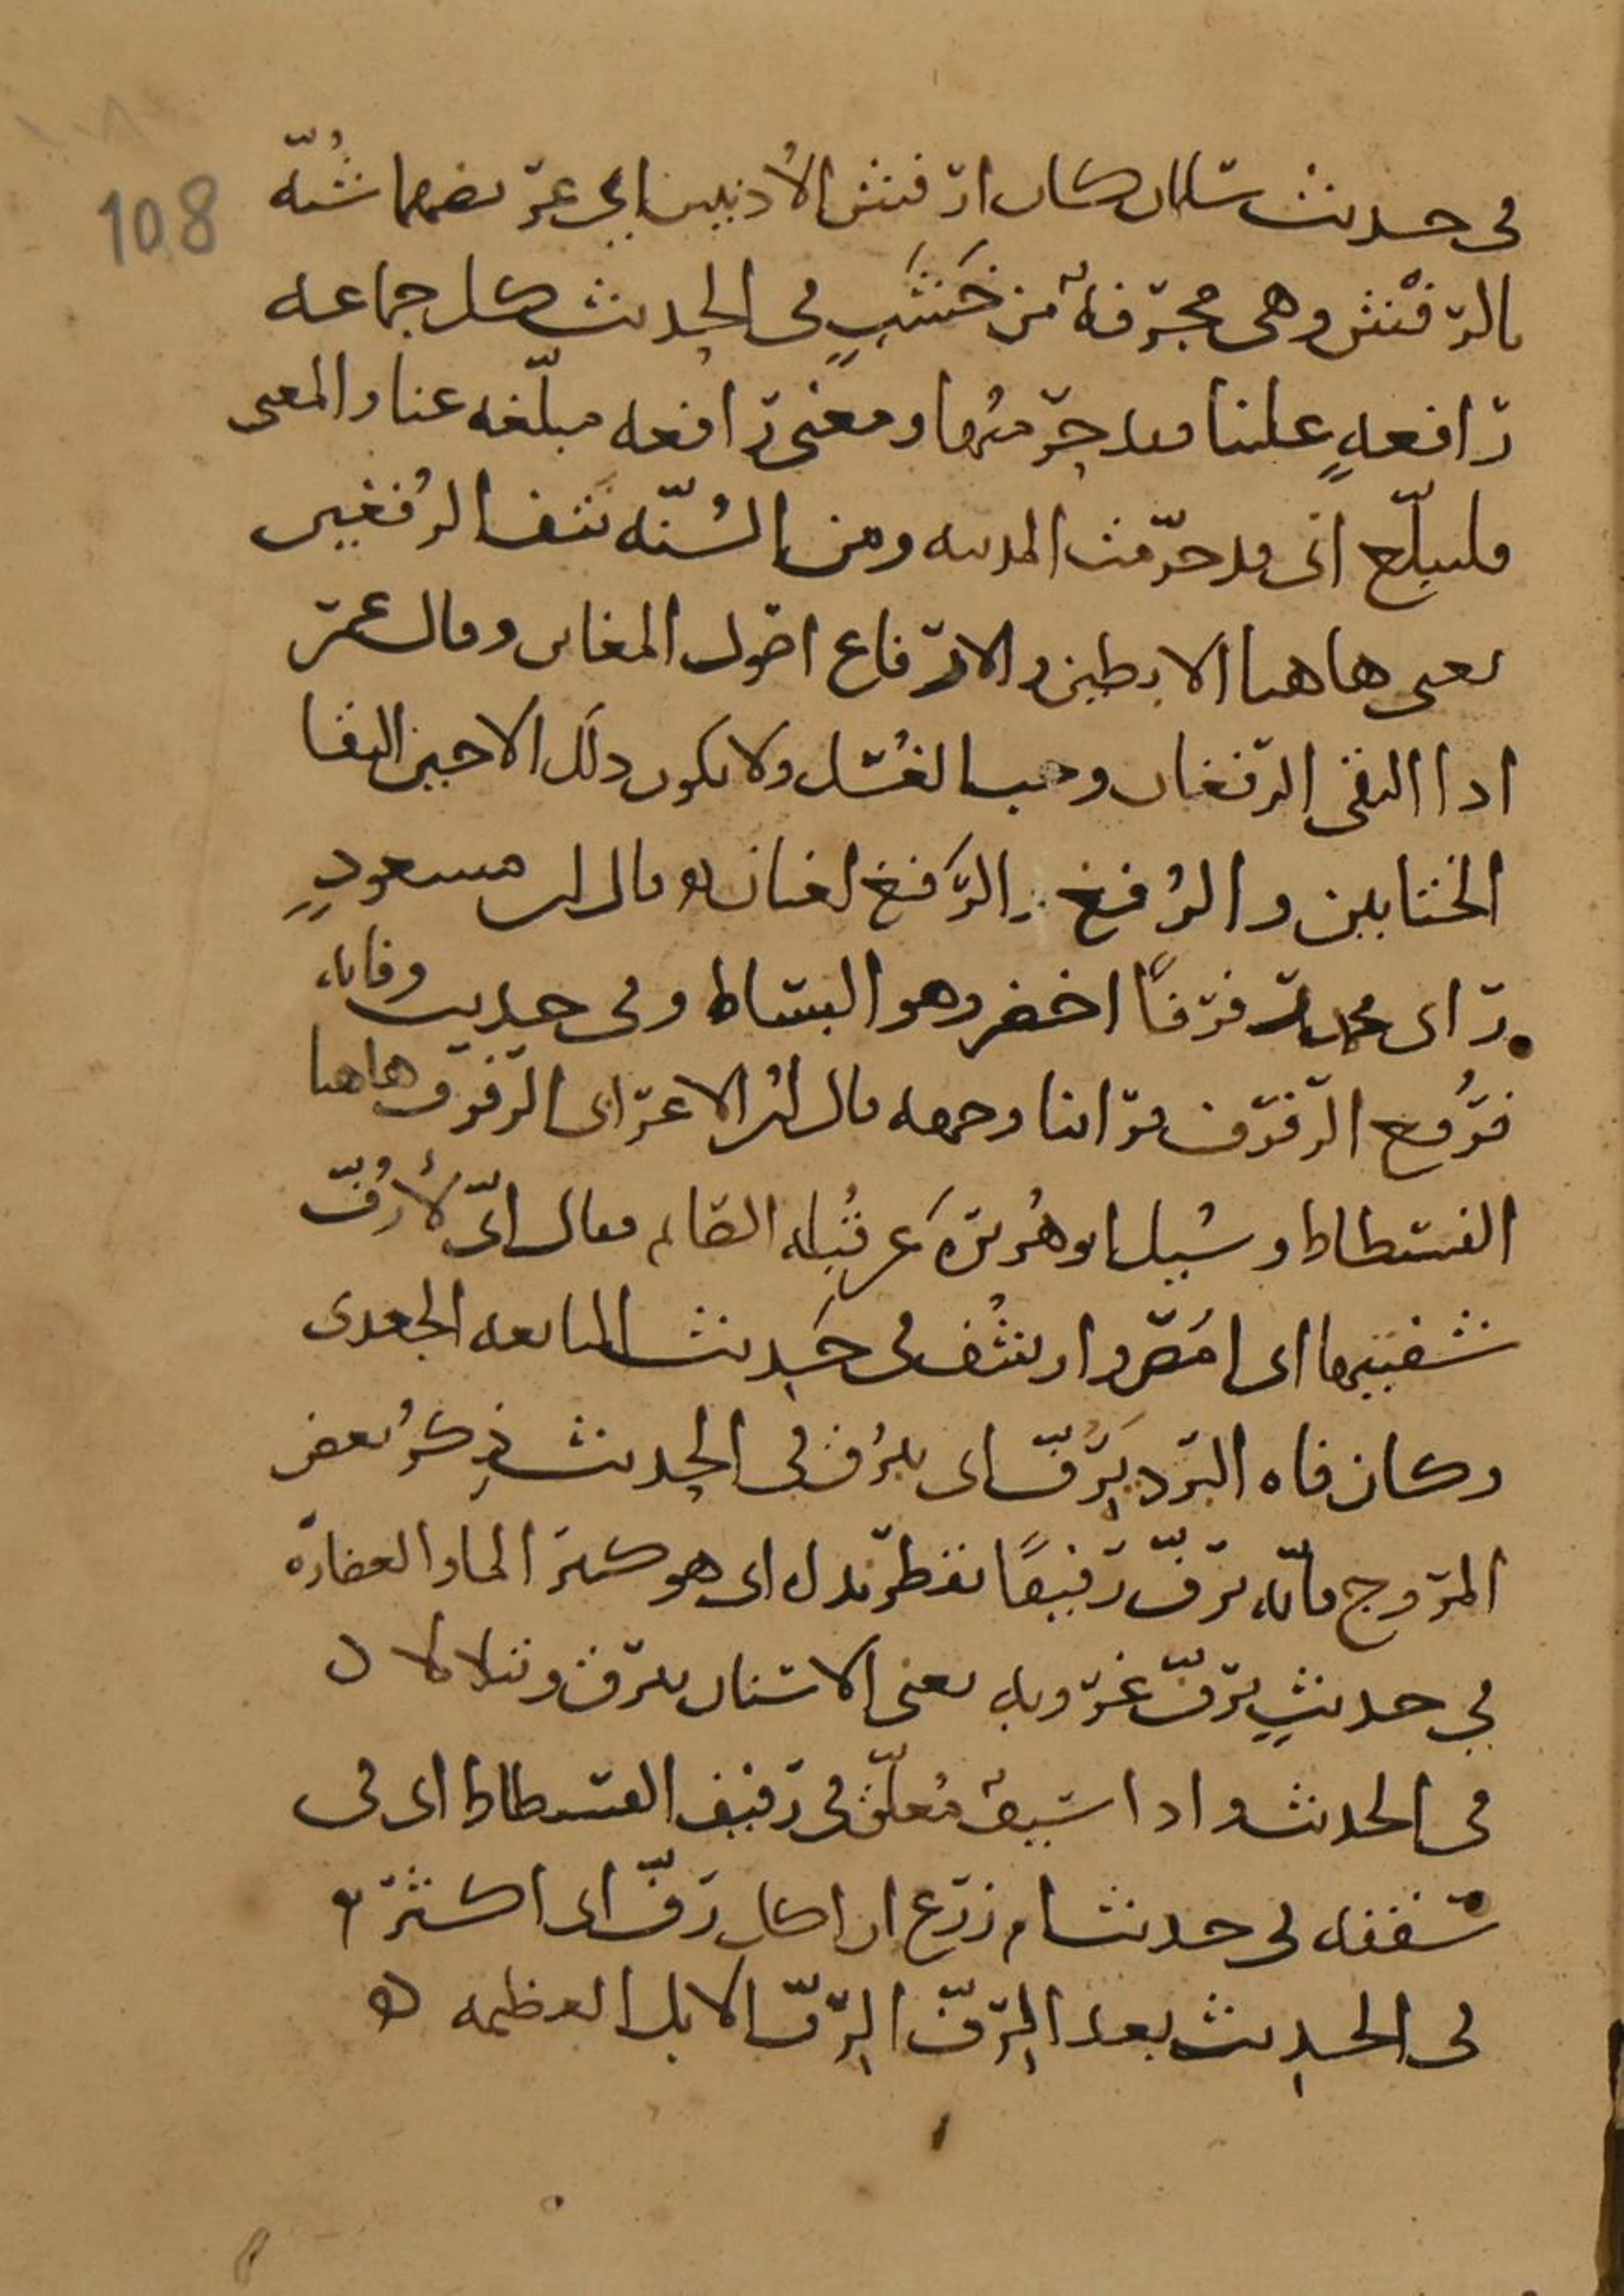 108
في حديث سلمان كان ارفش الأذنين اي عريضهما شبّه
بالرفش وهي مجرفة من خشب في الحديث كل جماعة
رافعةٍ علينا فقد حرمتها ومعنى رافعه مبلّغه عنا والمعنى
فليبلّغ اني قد حرّمت المدينه ومن السُنّه نتف الرُفغين
يعني هاهنا الابطين والارفاغ اصول المغابن وقال عمر
اذا التقى الرفغان وجب الغُسل ولا يكون ذلك الا حين التقا
الختانين والرُفغ والرَفغ لغتان قال ابن مسعودٍ
رأى محمد رفرفًا اخضر وهو البساط وفي حديث وفاته
فرُفع الرفرف فراينا وجهه قال ابن الاعرابي الرفرف هاهنا
الفسطاط وسُيل ابو هُريرة عن قُبله الصايم فقال انّي لأَرُفّ
شفتيها اي امُصّ وارتشف في حديث النابغه الجعدي
وكان فاه البرد يَرِفّ اي يبرُق في الحديث ذِكرُ بعض
المروج فانّه يرفّ رفيفًا يقطر نداه اي هو كثير الما والغضارة
في حديثٍ يرفّ غروبه يعني الاسنان يبرق ويتلالا
في الحديث واذا سيفٌ مُعلّق في رفيف الفسطاط اي في
سقفه في حديث ام زرع ان اكل رفّ اي اكثر
في الحديث بعد الرِفّ الرِفّ الابل العظيمه ه